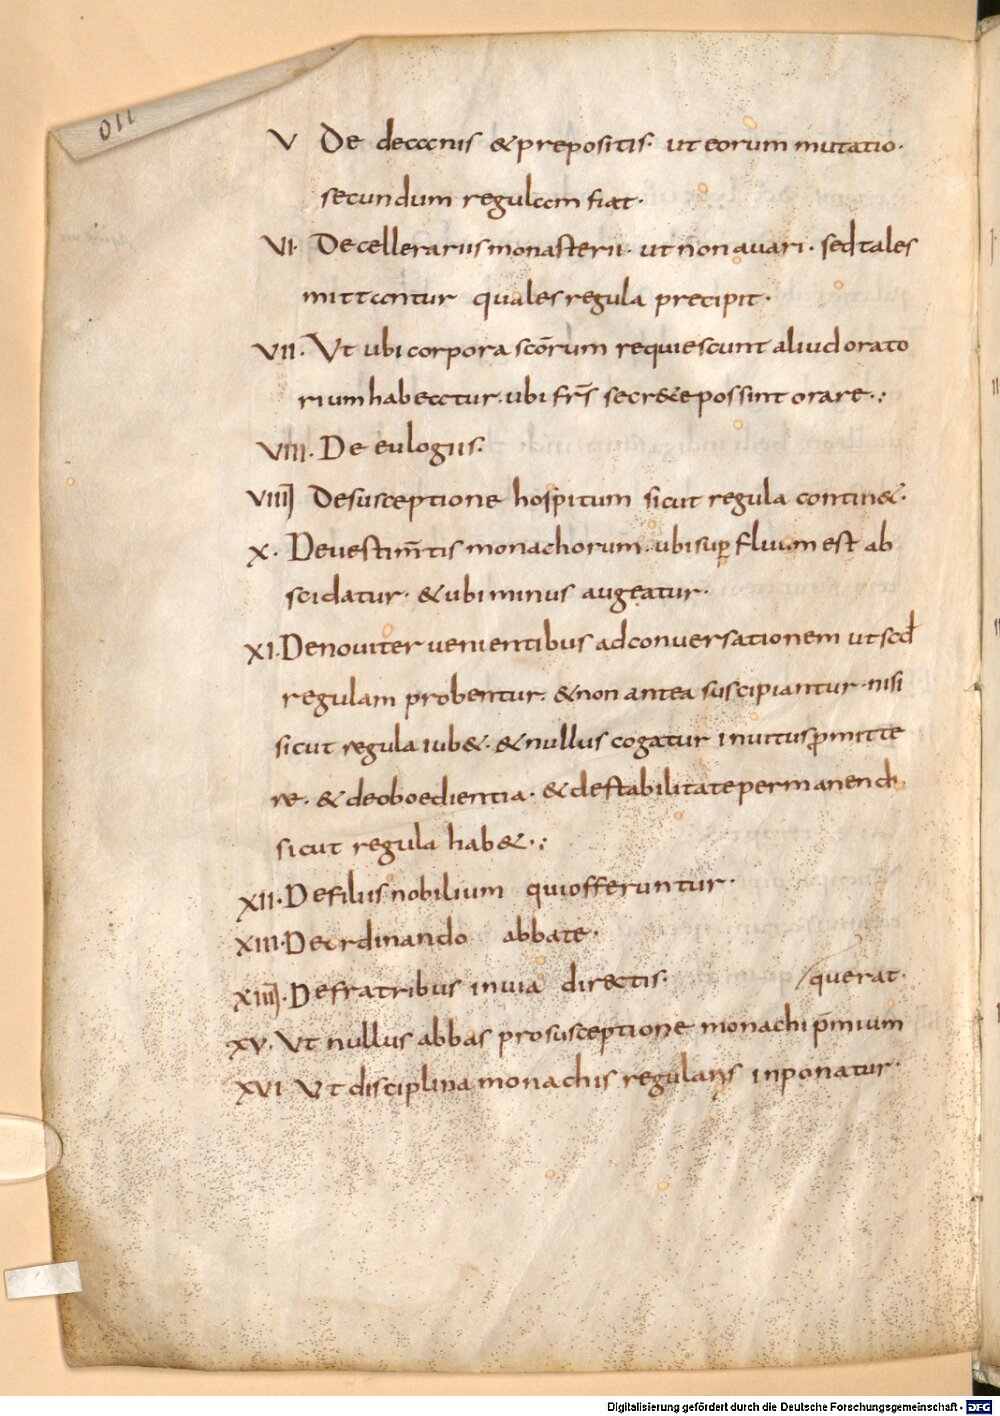 011
V De decanis & prepositis· ut eorum mutatio·
secundum regulam fiat·
VI· De cellerariis monasterii· ut non auari· sed tales
mittantur quales regula precipit·
VII· Ut ubi corpora scōrum requiescunt aliud orato
rium habeatur· ubi frs̄ secr&e possint orare·:
VIII· De eulogiis·
VIIII De susceptione hospitum sicut regula contin&·
X· De uestim̄tis monachorum· ubi suꝑfluum est ab
scidatur· & ubi minus augeatur·
XI· De nouiter uenientibus ad conuersationem ut scd̄
regulam probentur· & non antea suscipiantur· nisi
sicut regula iub&· & nullus cogatur inuitus ꝓmitte
re· & de oboedientia· & de stabilitate permanendi
sicut regula hab&·:
XII· De filiis nobilium qui offeruntur·
XIII· De ordinando abbate·
XIIII· De fratribus in uia directis· / querat·
XV· Ut nullus abbas pro susceptione monachi p̄mium
XVI Ut disciplina monachis regularis inponatur·
Digitalisierung gefördert durch die Deutsche Forschungsgemeinschaft - DFG